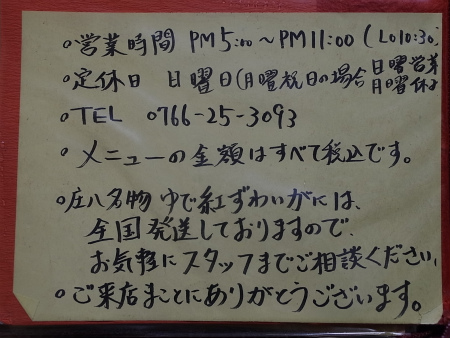 ○営業時間 PM5:00～PM11:00 (LO10:30)
○定休日 日曜日(月曜祝日の場合 日曜営業 月曜休み
○TEL 0766-25-3093
○メニューの金額はすべて税込です。
○庄八名物 ゆで紅ずわいがには、
全国発送しておりますので、
お気軽にスタッフまでご相談ください。
○ご来店まことにありがとうございます。